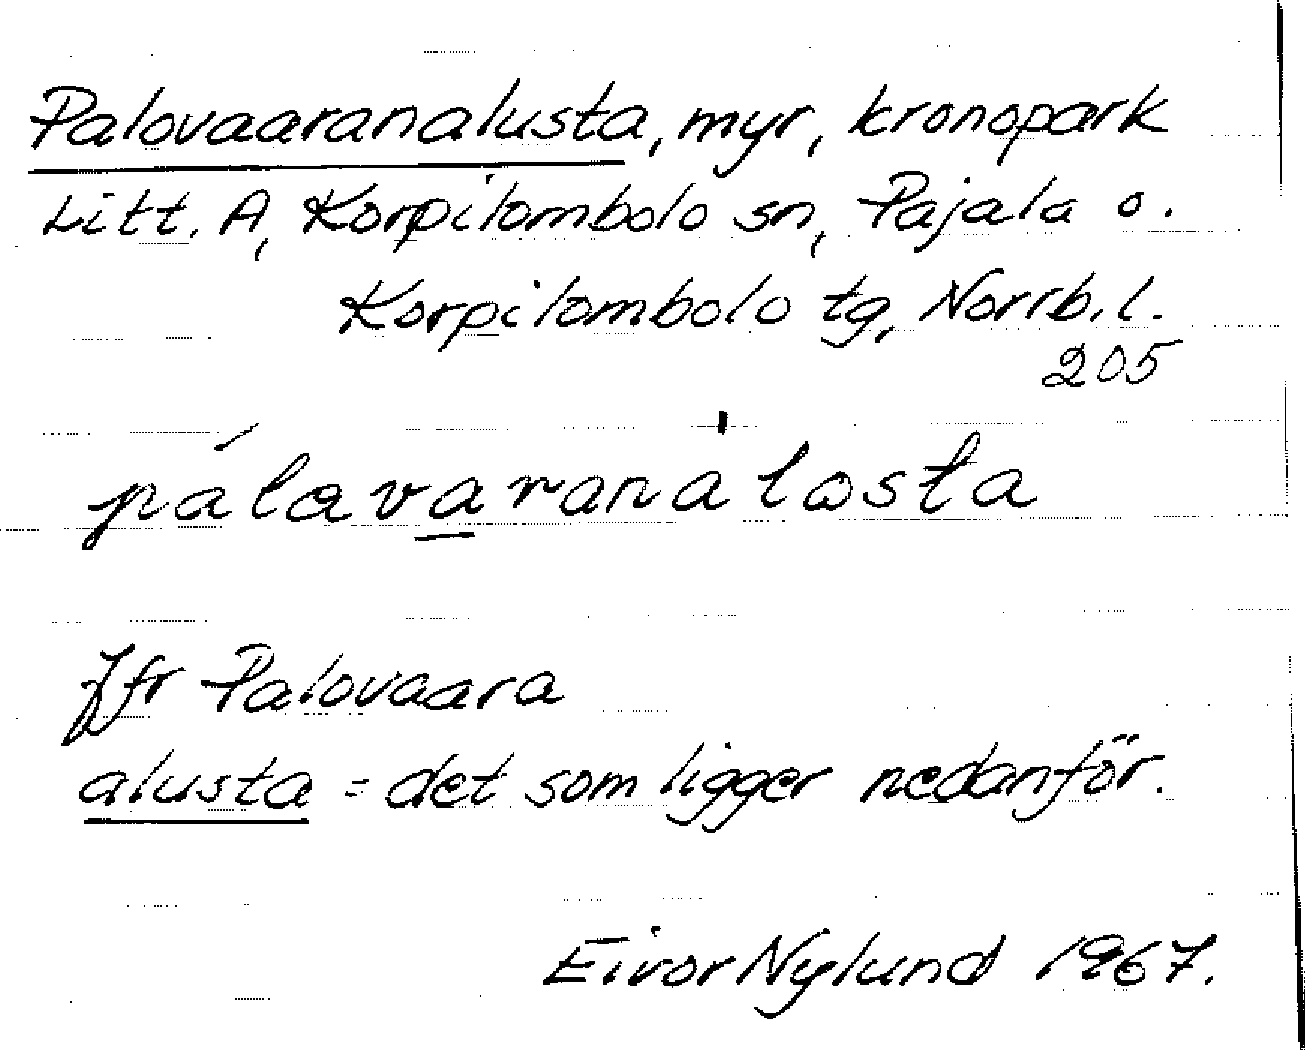 Palovaaranalusta, myr, kronopark
Litt. A, Korpilombolo sn, Pajala o.
Korpilombolo tg, Norrb. l.
205
pálavaranàlosta
Jfr Palovaara
alusta = det som ligger nedanför.
Eivor Nylund 1967.